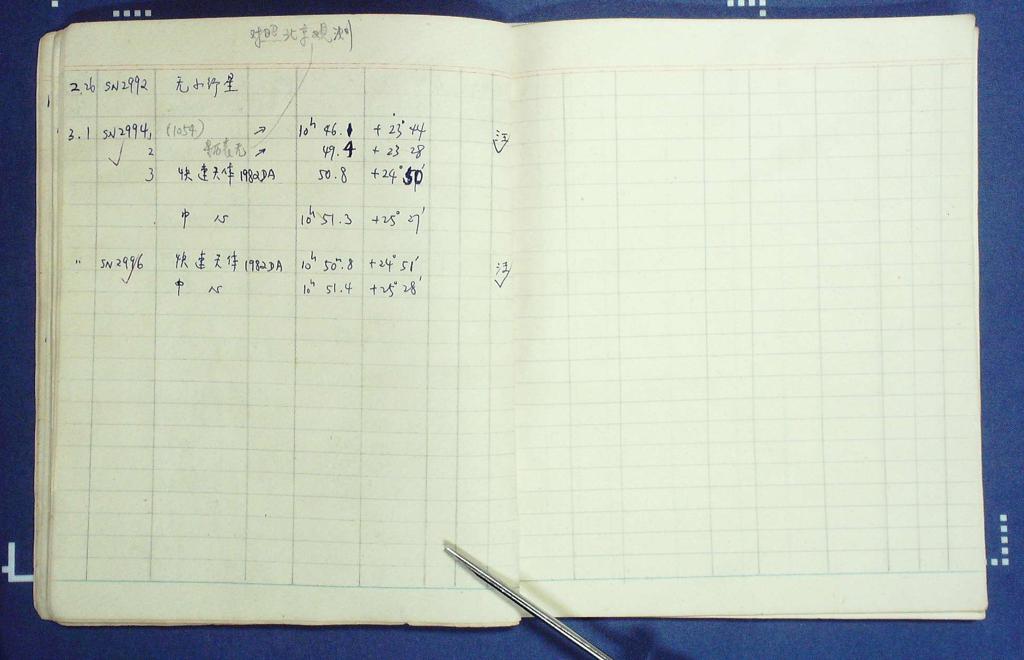 对照北京观测
2.26 SN2992 无小行星
3.1 SN2994 1 (1054) → 10h 46.1 +23° 44 汪
2 → 49.4 +23 28
3 快速天体 1982DA 50.8 +24° 50'
中心 10h 51.3 +25° 27'
" SN2996 快速天体 1982DA 10h 50m.8 +24° 51' 汪
中心 10h 51.4 +25° 28'